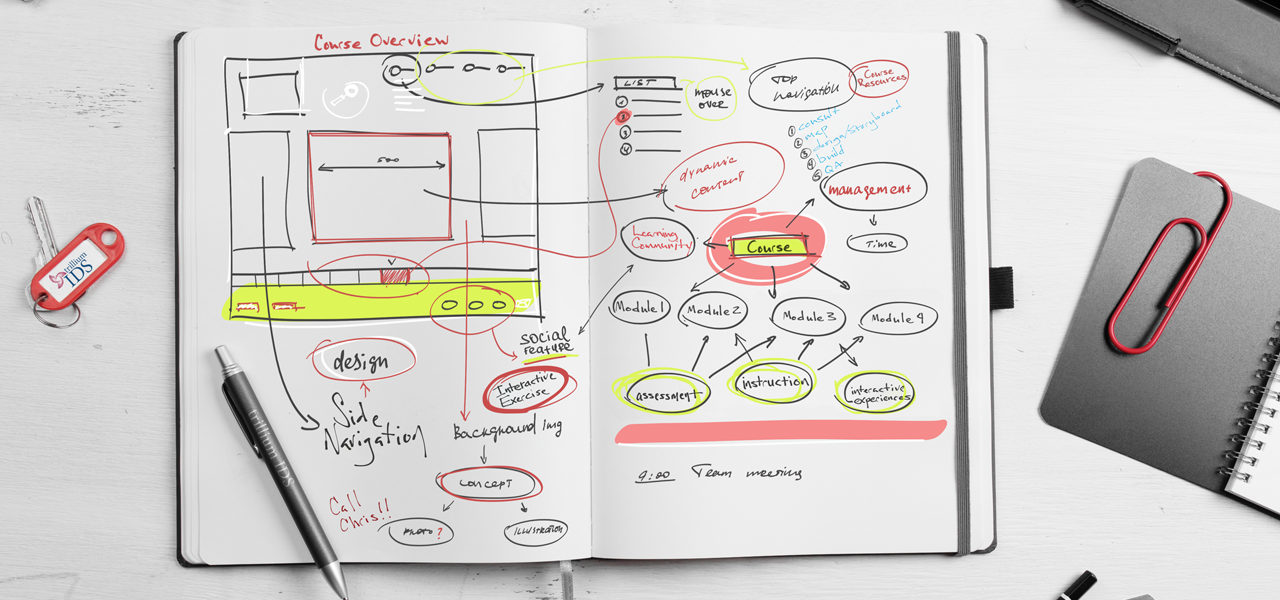 Course Overview
500
design
Side
Navigation
Call
Chris!!
social
feature
Interactive
Exercise
Background Img
concept
PHOTO?
ILLUSTRATION
LIST
1
2
3
4
mouse
over
TOP
navigation
Course
Resources
1 consult
2 map
3 design/storyboard
4 build
5 QA
dynamic
content
management
Time
Learning
Community
Course
Module 1
Module 2
Module 3
Module 4
assessment
instruction
interactive
experiences
9:00 Team meeting
trillium
IDS
trillium IDS